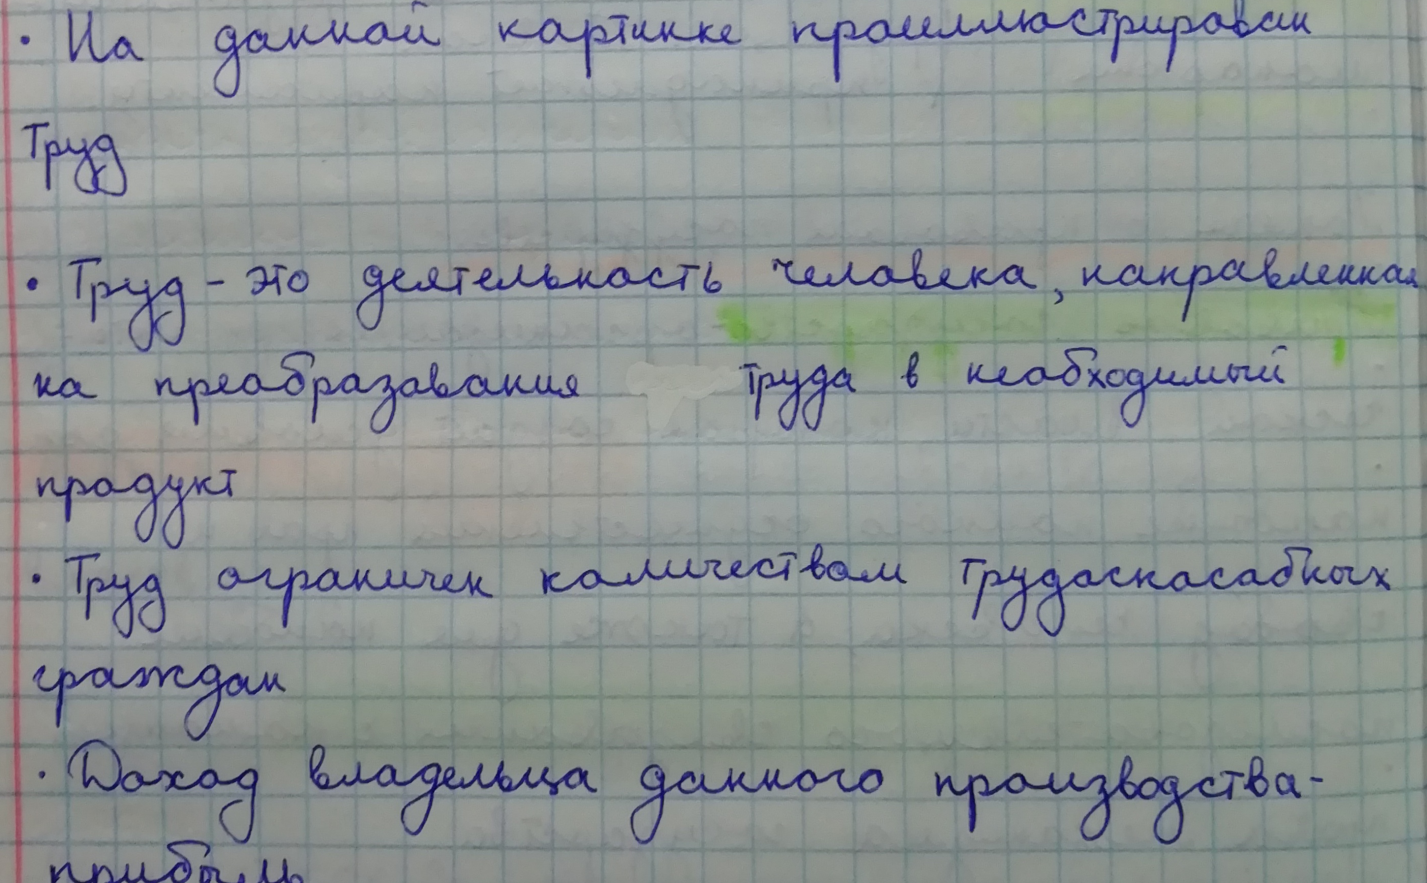 · На данной картинке проиллюстрирован
Труд
· Труд - это деятельность человека, направленная
на преобразования труда в необходимый
продукт
· Труд ограничен количеством трудоспособных
граждан
· Доход владельца данного производства-
прибыль